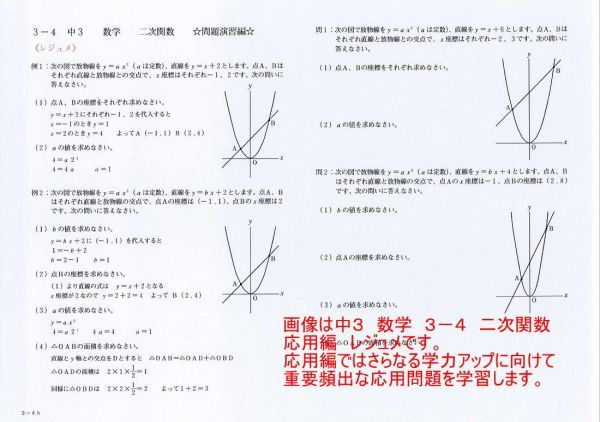 3－4 中3 数学 二次関数 ☆問題演習編☆
《レジュメ》
例1：次の図で放物線をy＝ax²（aは定数）、直線をy＝x＋2とします。点A、Bは
それぞれ直線と放物線との交点で、x座標はそれぞれ－1、2です。次の問いに
答えなさい。
（1）点A、Bの座標をそれぞれ求めなさい。
y＝x＋2にそれぞれ－1、2を代入すると
x＝－1のときy＝1
x＝2のときy＝4 よってA（－1,1）B（2,4）
（2）aの値を求めなさい。
4＝a2²
4＝4a a＝1
y
B
A
O
x
例2：次の図で放物線をy＝ax²（aは定数）、直線をy＝bx＋2とします。点A、B
はそれぞれ直線と放物線の交点で、点Aの座標は（－1,1）、点Bのx座標は2
です。次の問いに答えなさい。
（1）bの値を求めなさい。
y＝bx＋2に（－1,1）を代入すると
1＝－b＋2
b＝2－1 b＝1
（2）点Bの座標を求めなさい。
（1）より直線の式は y＝x＋2となる
x座標が2なので y＝2＋2＝4 よって B（2,4）
（3）aの値を求めなさい。
y＝ax²
4＝a2² 4＝4a a＝1
（4）△OABの面積を求めなさい。
直線とy軸との交点をDとすると △OAB＝△OAD＋△OBD
△OADの面積は 2×1×1/2＝1
同様に△OBDは 2×2×1/2＝2 よって1＋2＝3
y
B
A
O
x
y
B
A
O
x
3－4h
問1：次の図で放物線をy＝ax²（aは定数）、直線をy＝x＋6とします。点A、B
はそれぞれ直線と放物線の交点で、x座標はそれぞれ－2、3です。次の問いに
答えなさい。
（1）点A、Bの座標をそれぞれ求めなさい。
（2）aの値を求めなさい。
y
B
A
O
x
問2：次の図で放物線をy＝ax²（aは定数）、直線をy＝bx＋4とします。点A、B
はそれぞれ直線と放物線の交点で、点Aのx座標は－1、点Bの座標は（2,8）
です。次の問いに答えなさい。
（1）bの値を求めなさい。
（2）点Aの座標を求めなさい。
（3）aの値を求めなさい。
y
B
A
x
画像は中3 数学 3－4 二次関数
応用編 レジュメです。
応用編ではさらなる学力アップに向けて
重要頻出な応用問題を学習します。